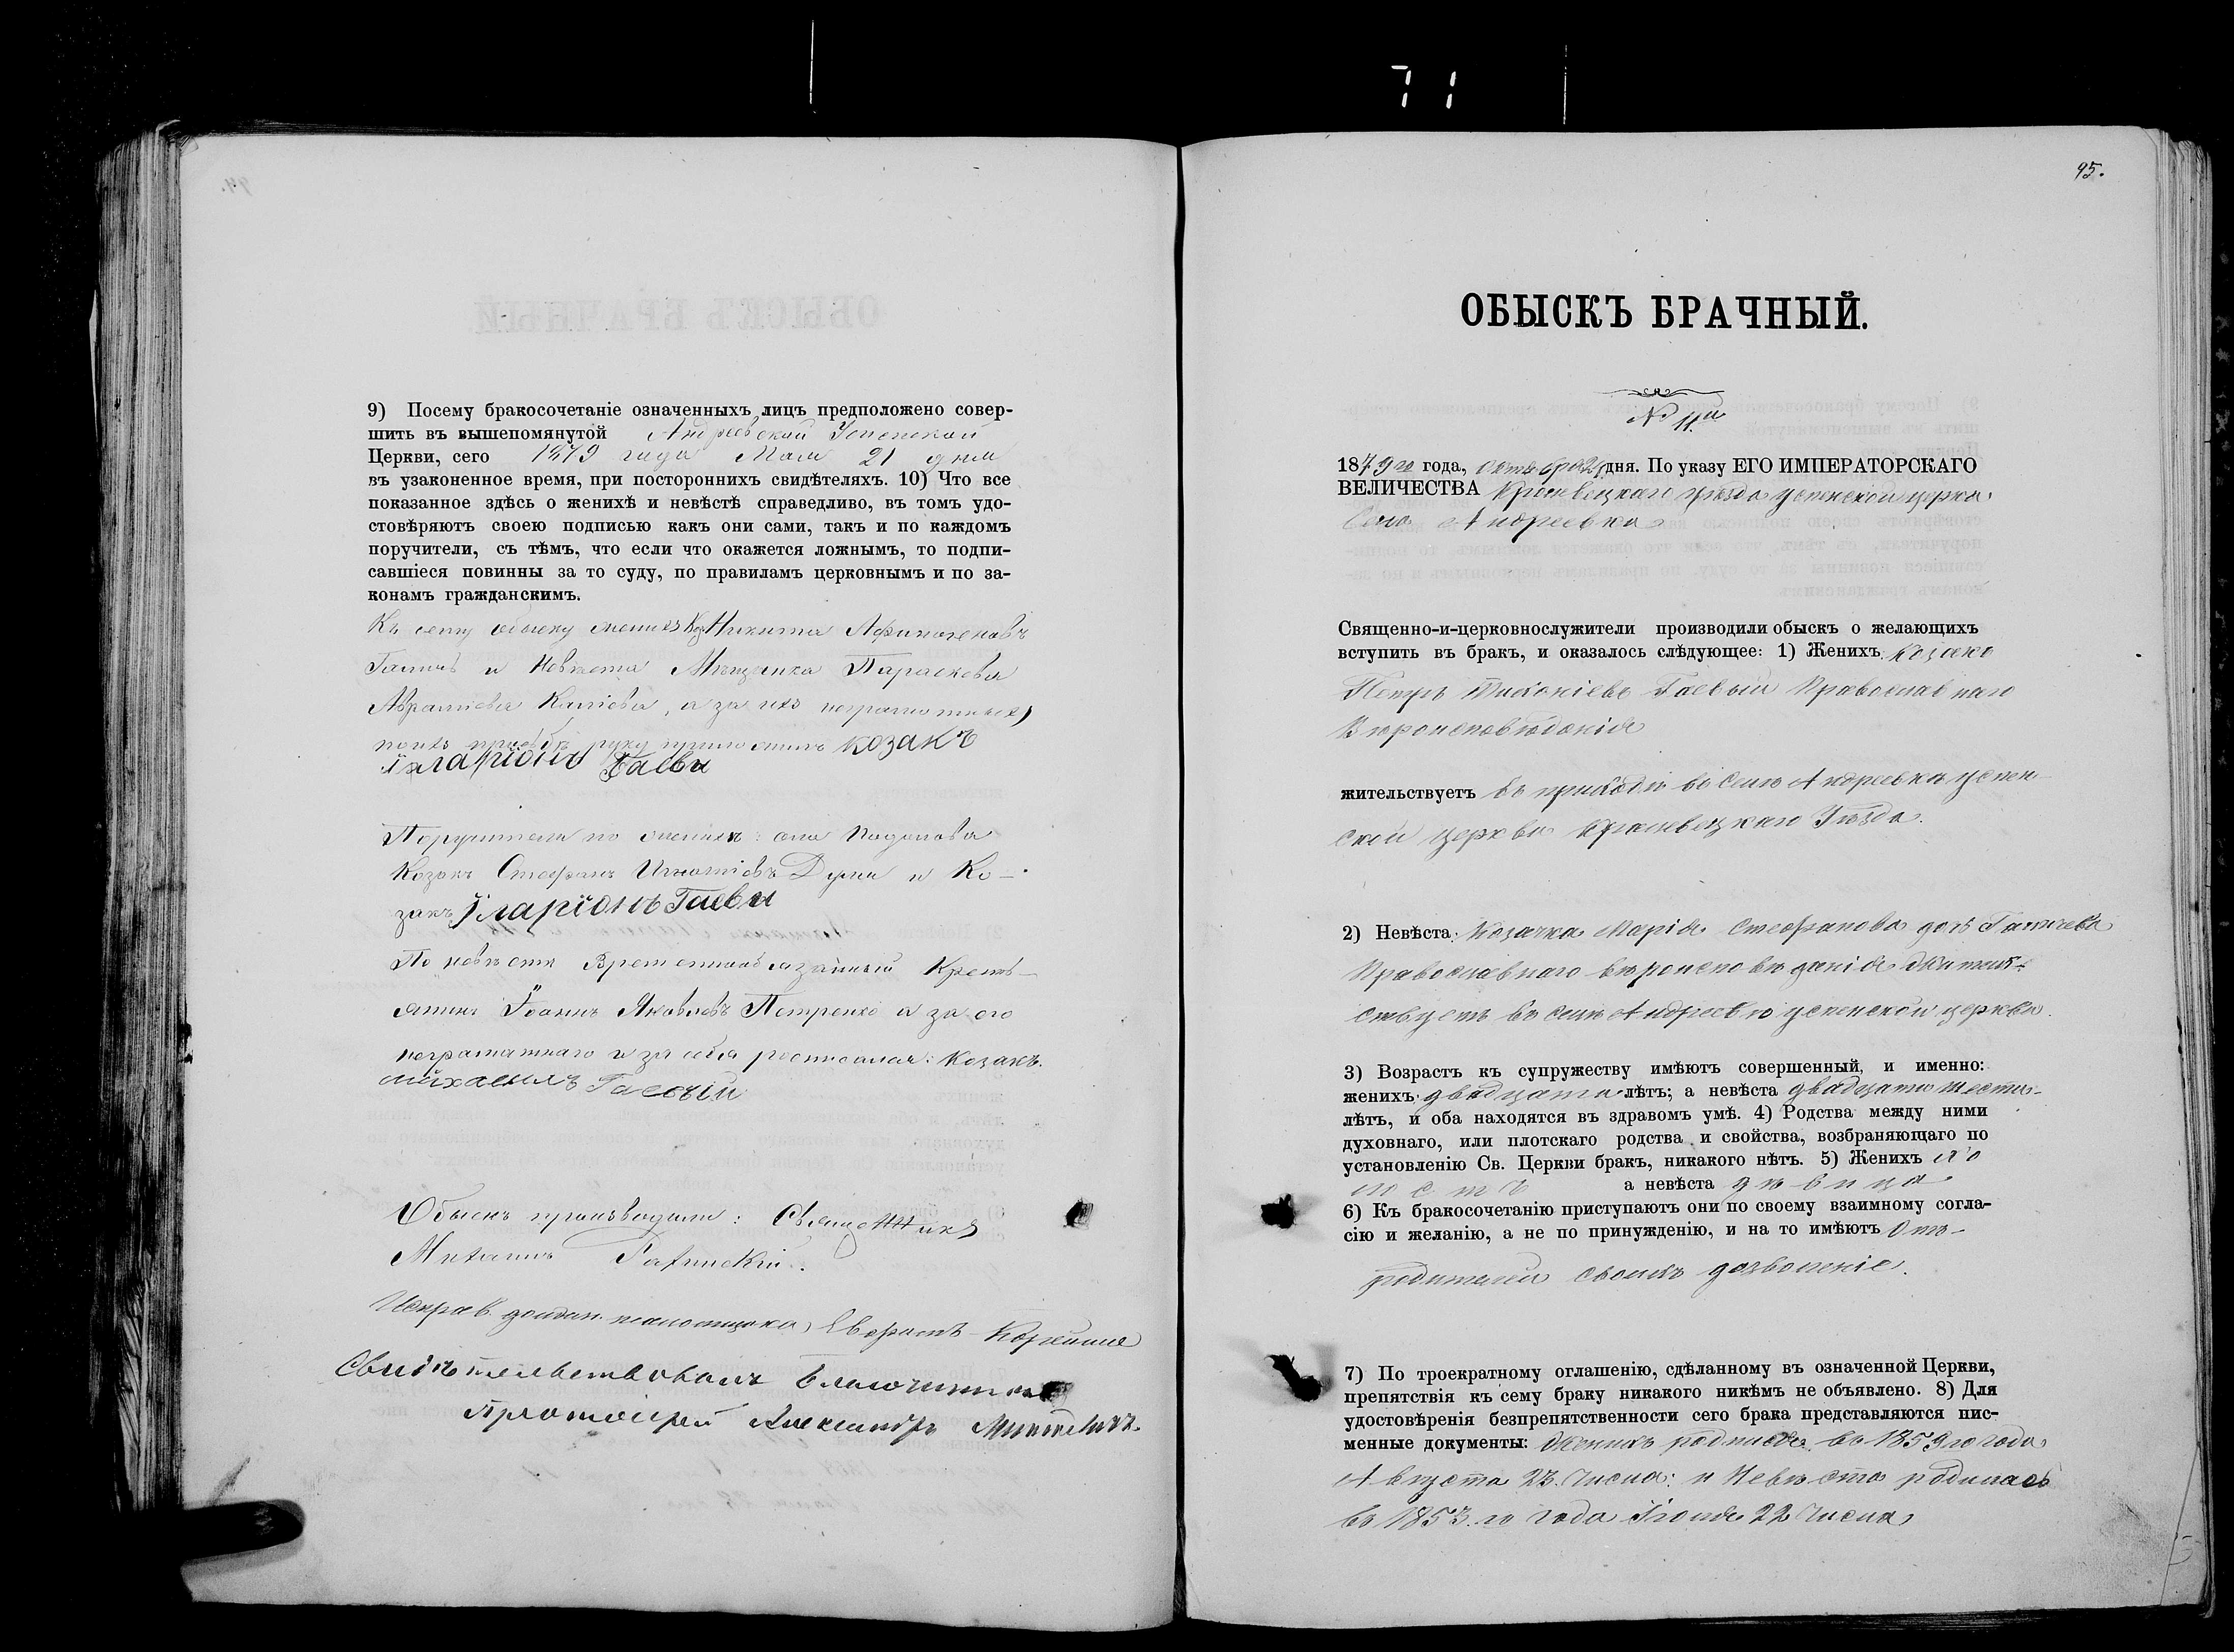 71
9) Посему бракосочетаніе означенныхъ лицъ предположено совер-
шить въ вышепомянутой Андреевской Успенской
Церкви, сего 1879 года Мая 21 дня
въ узаконенное время, при постороннихъ свидѣтеляхъ. 10) Что все
показанное здѣсь о женихѣ и невѣстѣ справедливо, въ томъ удо-
стовѣряютъ своею подписью какъ они сами, такъ и по каждомъ
поручители, съ тѣмъ, что если что окажется ложнымъ, то подпи-
савшіеся повинны за то суду, по правиламъ церковнымъ и по за-
конамъ гражданскимъ.
Къ сему обыску женихъ Никита
и Невѣста Мѣщанка Параскева
а за ихъ неграмотныхъ
руку приложилъ козакъ
Іларіонъ Гаевы
Поручители по женихѣ:
Козакъ Стефанъ Игнатіевъ и Ко-
закъ Іларіонъ Гаевы
По невѣстѣ Временнообязанный Крестъ-
янинъ Іоаннъ Яковлевъ Петренко а за его
неграматнаго и за себя росписался: Козакъ
михаилъ Гаевый
Обыскъ производили: Священникъ
Михаилъ
Свидѣтельствовалъ Благочинный
Протоіерей Александръ
95.
ОБЫСКЪ БРАЧНЫЙ.
№ 11й
1879го года, Октября 21 дня. По указу ЕГО ИМПЕРАТОРСКАГО
ВЕЛИЧЕСТВА Кролевецкаго уѣзда успенской церкви
Села Андреевка
Священно-и-церковнослужители производили обыскъ о желающихъ
вступить въ бракъ, и оказалось слѣдующее: 1) Женихъ: козакъ
Петръ Гаевый Православнаго
Вѣроисповѣданія
жительствуетъ въ приходѣ во селѣ Андреевки успен-
ской церкви Кролевецкаго Уѣзда.
2) Невѣста: Козачка Марія Стефанова дочь
Православнаго вѣроисповѣданія жітель-
ствуетъ въ селѣ Андреевкѣ успенской церкви.
3) Возрастъ къ супружеству имѣютъ совершенный, и именно:
женихъ: двадцати лѣтъ; а невѣста двадцати шести
лѣтъ, и оба находятся въ здравомъ умѣ. 4) Родства между ними
духовнаго, или плотскаго родства и свойства, возбраняющаго по
установленію Св. Церкви бракъ, никакого нѣтъ. 5) Женихъ хо
лостъ а невѣста дѣвица
6) Къ бракосочетанію приступаютъ они по своему взаимному согла-
сію и желанію, а не по принужденію, и на то имѣютъ Отъ
родителей своихъ дозволеніе.
7) По троекратному оглашенію, сдѣланному въ означенной Церкви,
препятствія къ сему браку никакого никѣмъ не объявлено. 8) Для
удостовѣренія безпрепятственности сего брака представляются пис-
менные документы: Женихъ родился въ 1859го года
Августа 23. Числа: и Невѣста родилась
въ 1853.го года Іюля 22 Числа,